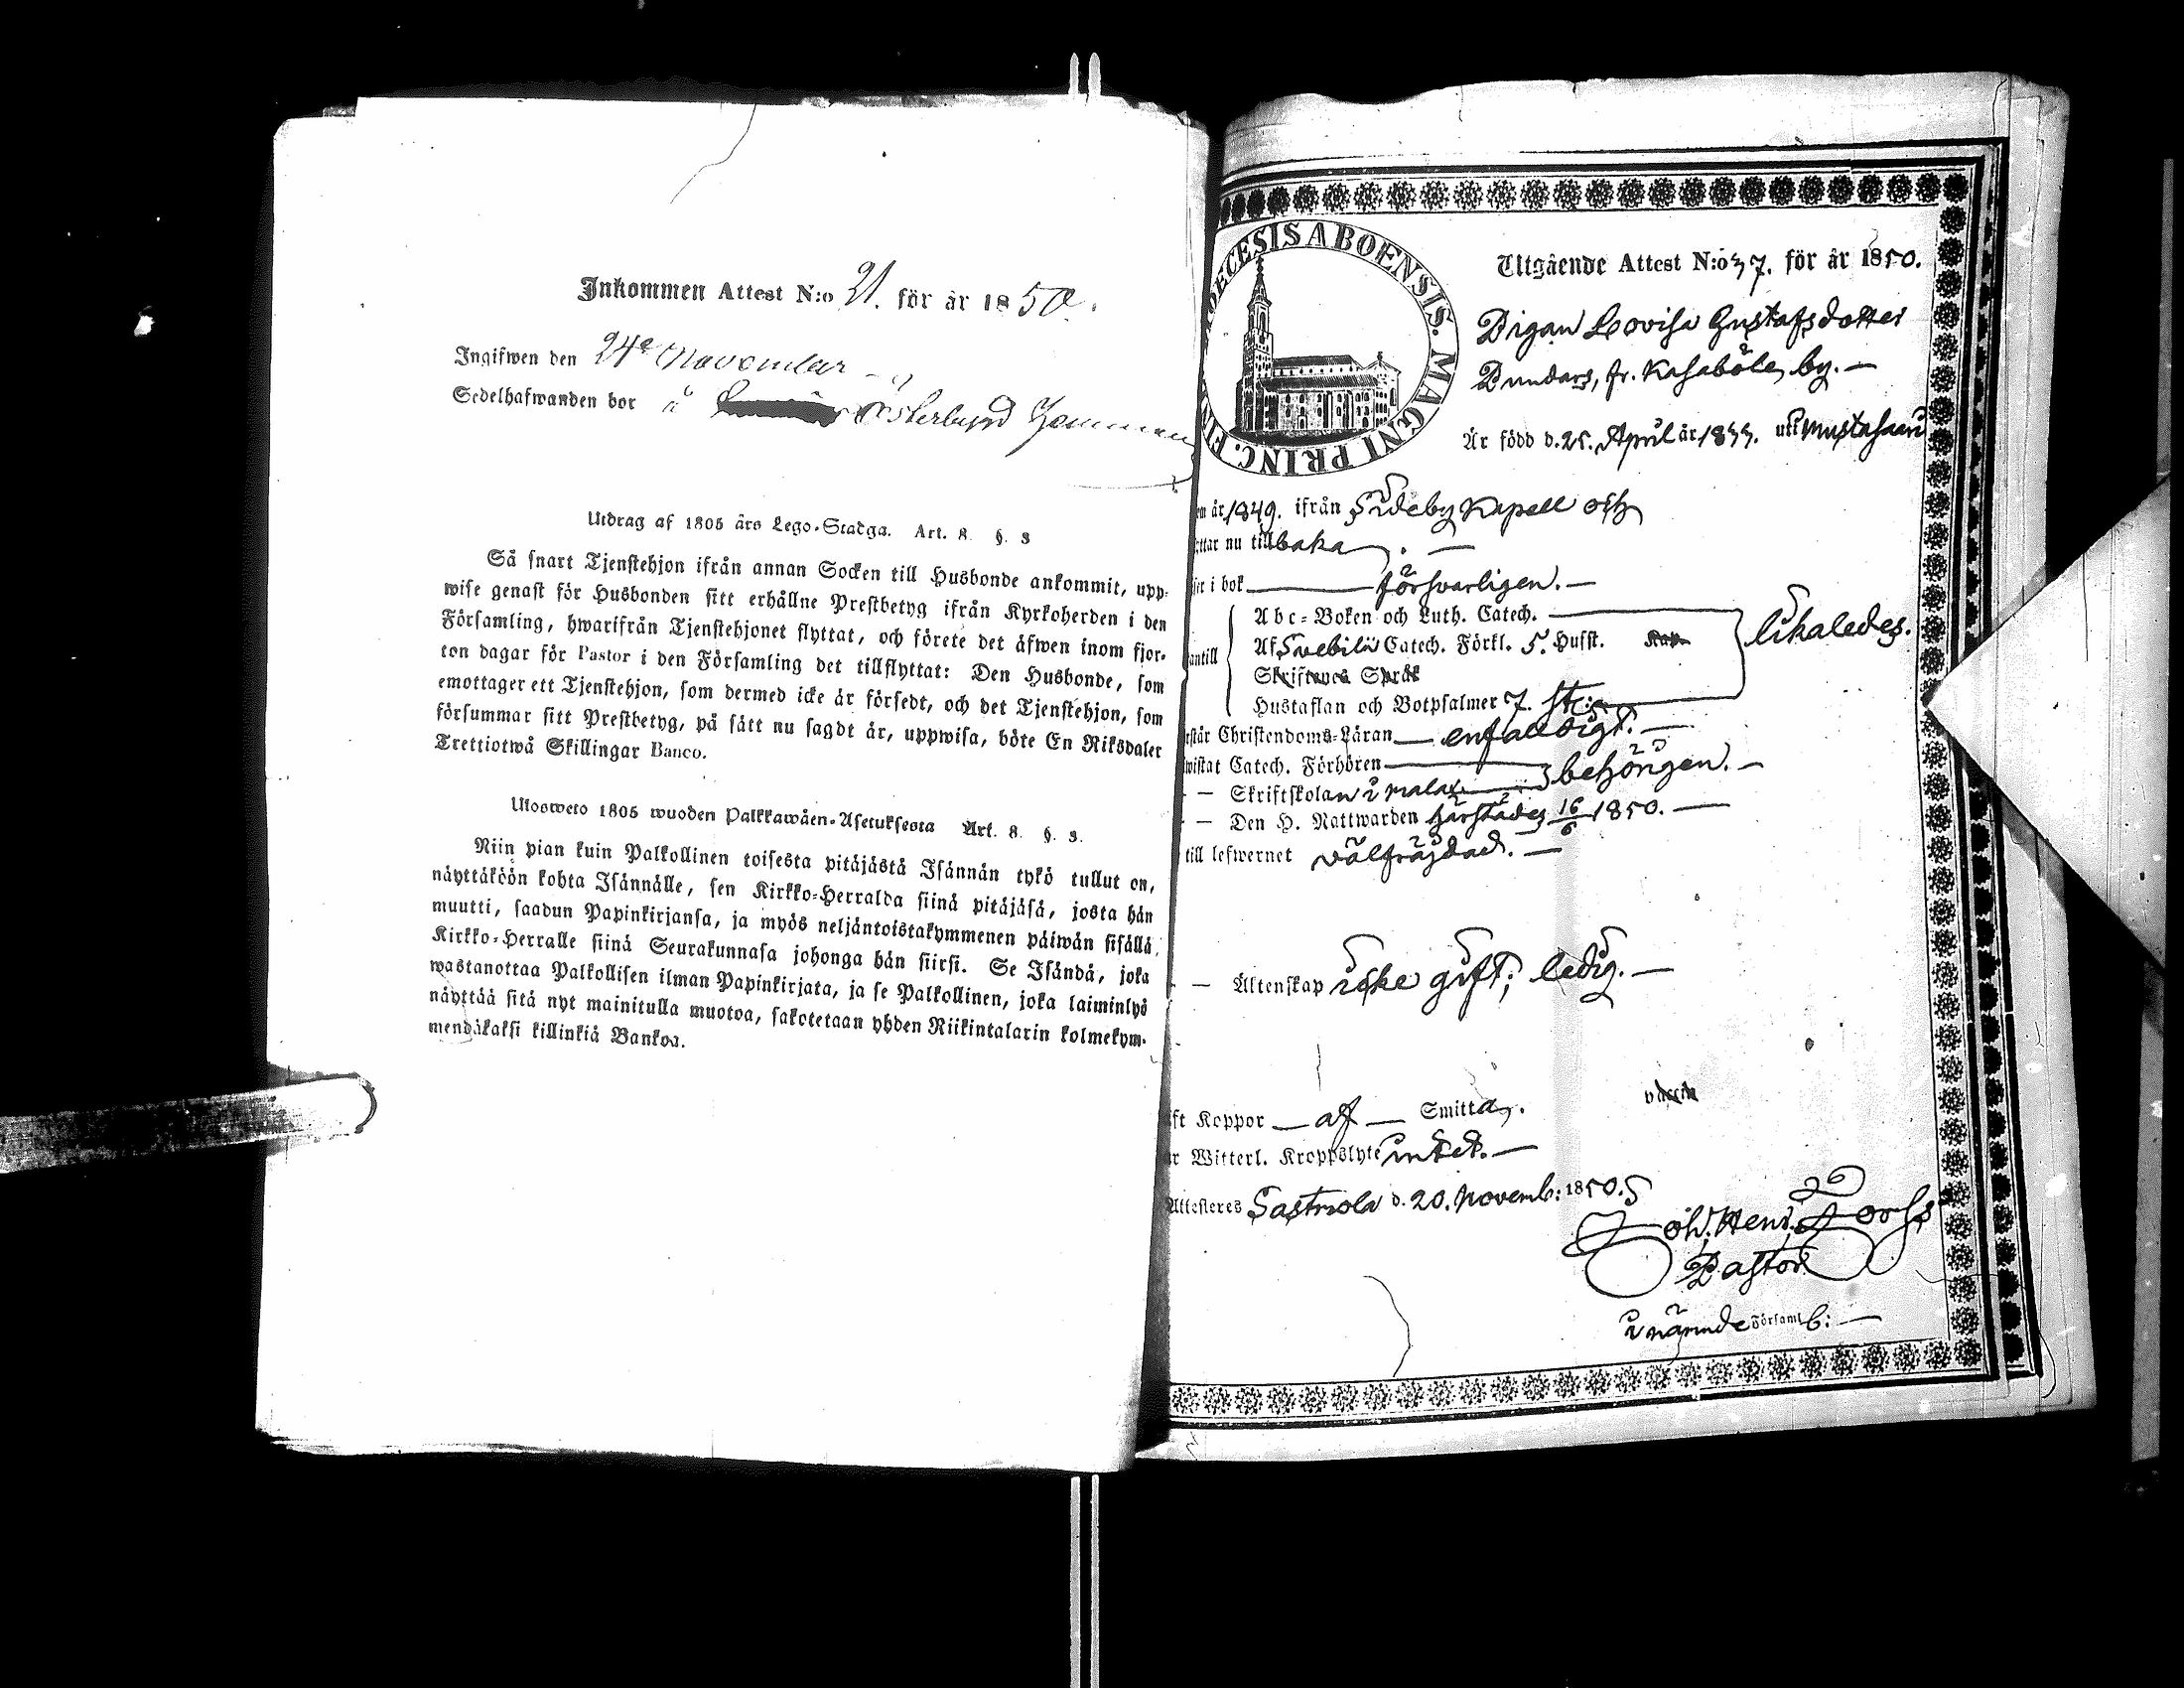 Inkommen Attest N:o 21. för år 1850.
Ingifwen den 24e November
Sedelhafwanden bor å Österbyrd
Utdrag af 1805 års Lego-Stadga. Art. 8. §. 3
Så snart Tjenstehjon ifrån annan Socken till Husbonde ankommit, upp-
wise genast för Husbonden sitt erhållne Prestbetyg ifrån Kyrkoherden i den
Församling, hwarifrån Tjenstehjonet flyttat, och förete det äfwen inom fjor-
ton dagar för Pastor i den Församling det tillflyttat: Den Husbonde, som
emottager ett Tjenstehjon, som dermed icke är försedt, och det Tjenstehjon, som
försummar sitt Prestbetyg, på sätt nu sagdt är, uppwisa, böte En Riksdaler
Trettiotwå Skillingar Banco.
Ulosweto 1805 wuoden Palkkawäen-Asetuksesta Art. 8. §. 3.
Niin pian kuin Palkollinen toisesta pitäjästä Isännän tykö tullut on,
näyttäköön kohta Isännälle, sen Kirkko-Herralda siinä pitäjäsä, josta hän
muutti, saadun Papinkirjansa, ja myös neljäntoistakymmenen päiwän sisällä
Kirkko-Herralle siinä Seurakunnasa johonga hän siirsi. Se Isändä, joka
wastanottaa Palkollisen ilman Papinkirjata, ja se Palkollinen, joka laiminlyö
näyttää sitä nyt mainitulla muotoa, sakotetaan yhden Riikintalarin kolmekym-
mendäkaksi killinkiä Bankoa.
OECESIS ABOENSIS. MAGNI PRINC. FIN
Utgående Attest N:o 37. för år 1850.
Pigan Lovisa Gustafsdotter
Dundars, fr. Kasaböle by.
Är född d. 25. April år 1833. utk
år 1849. ifrån Sideby Kapell och
ttar nu tillbaka.
ser i bok försvarligen.
Abc-Boken och Luth. Catech.
Af Svebilii Catech. Förkl. 5. Hufst. Kap.
Skriftenes Språk
likaledes.
antill
Hustaflan och Botpsalmer 7. st:
rstår Christendoms-Läran enfaldigt.
wistat Catech. Förhören behörigen.
Skriftskolan i malax
Den H. Nattwarden härstädes 16/6 1850.
till lefwernet välfrägdad.
Äktenskap icke gift; ledig.
ft Koppor af Smitta.
vaccin
r Witterl. Kroppslyte intet.
Attesteres Sastmola d. 20. Novemb: 1850.
Joh. Henr. Forss
Pastor
i nämnde Församl: